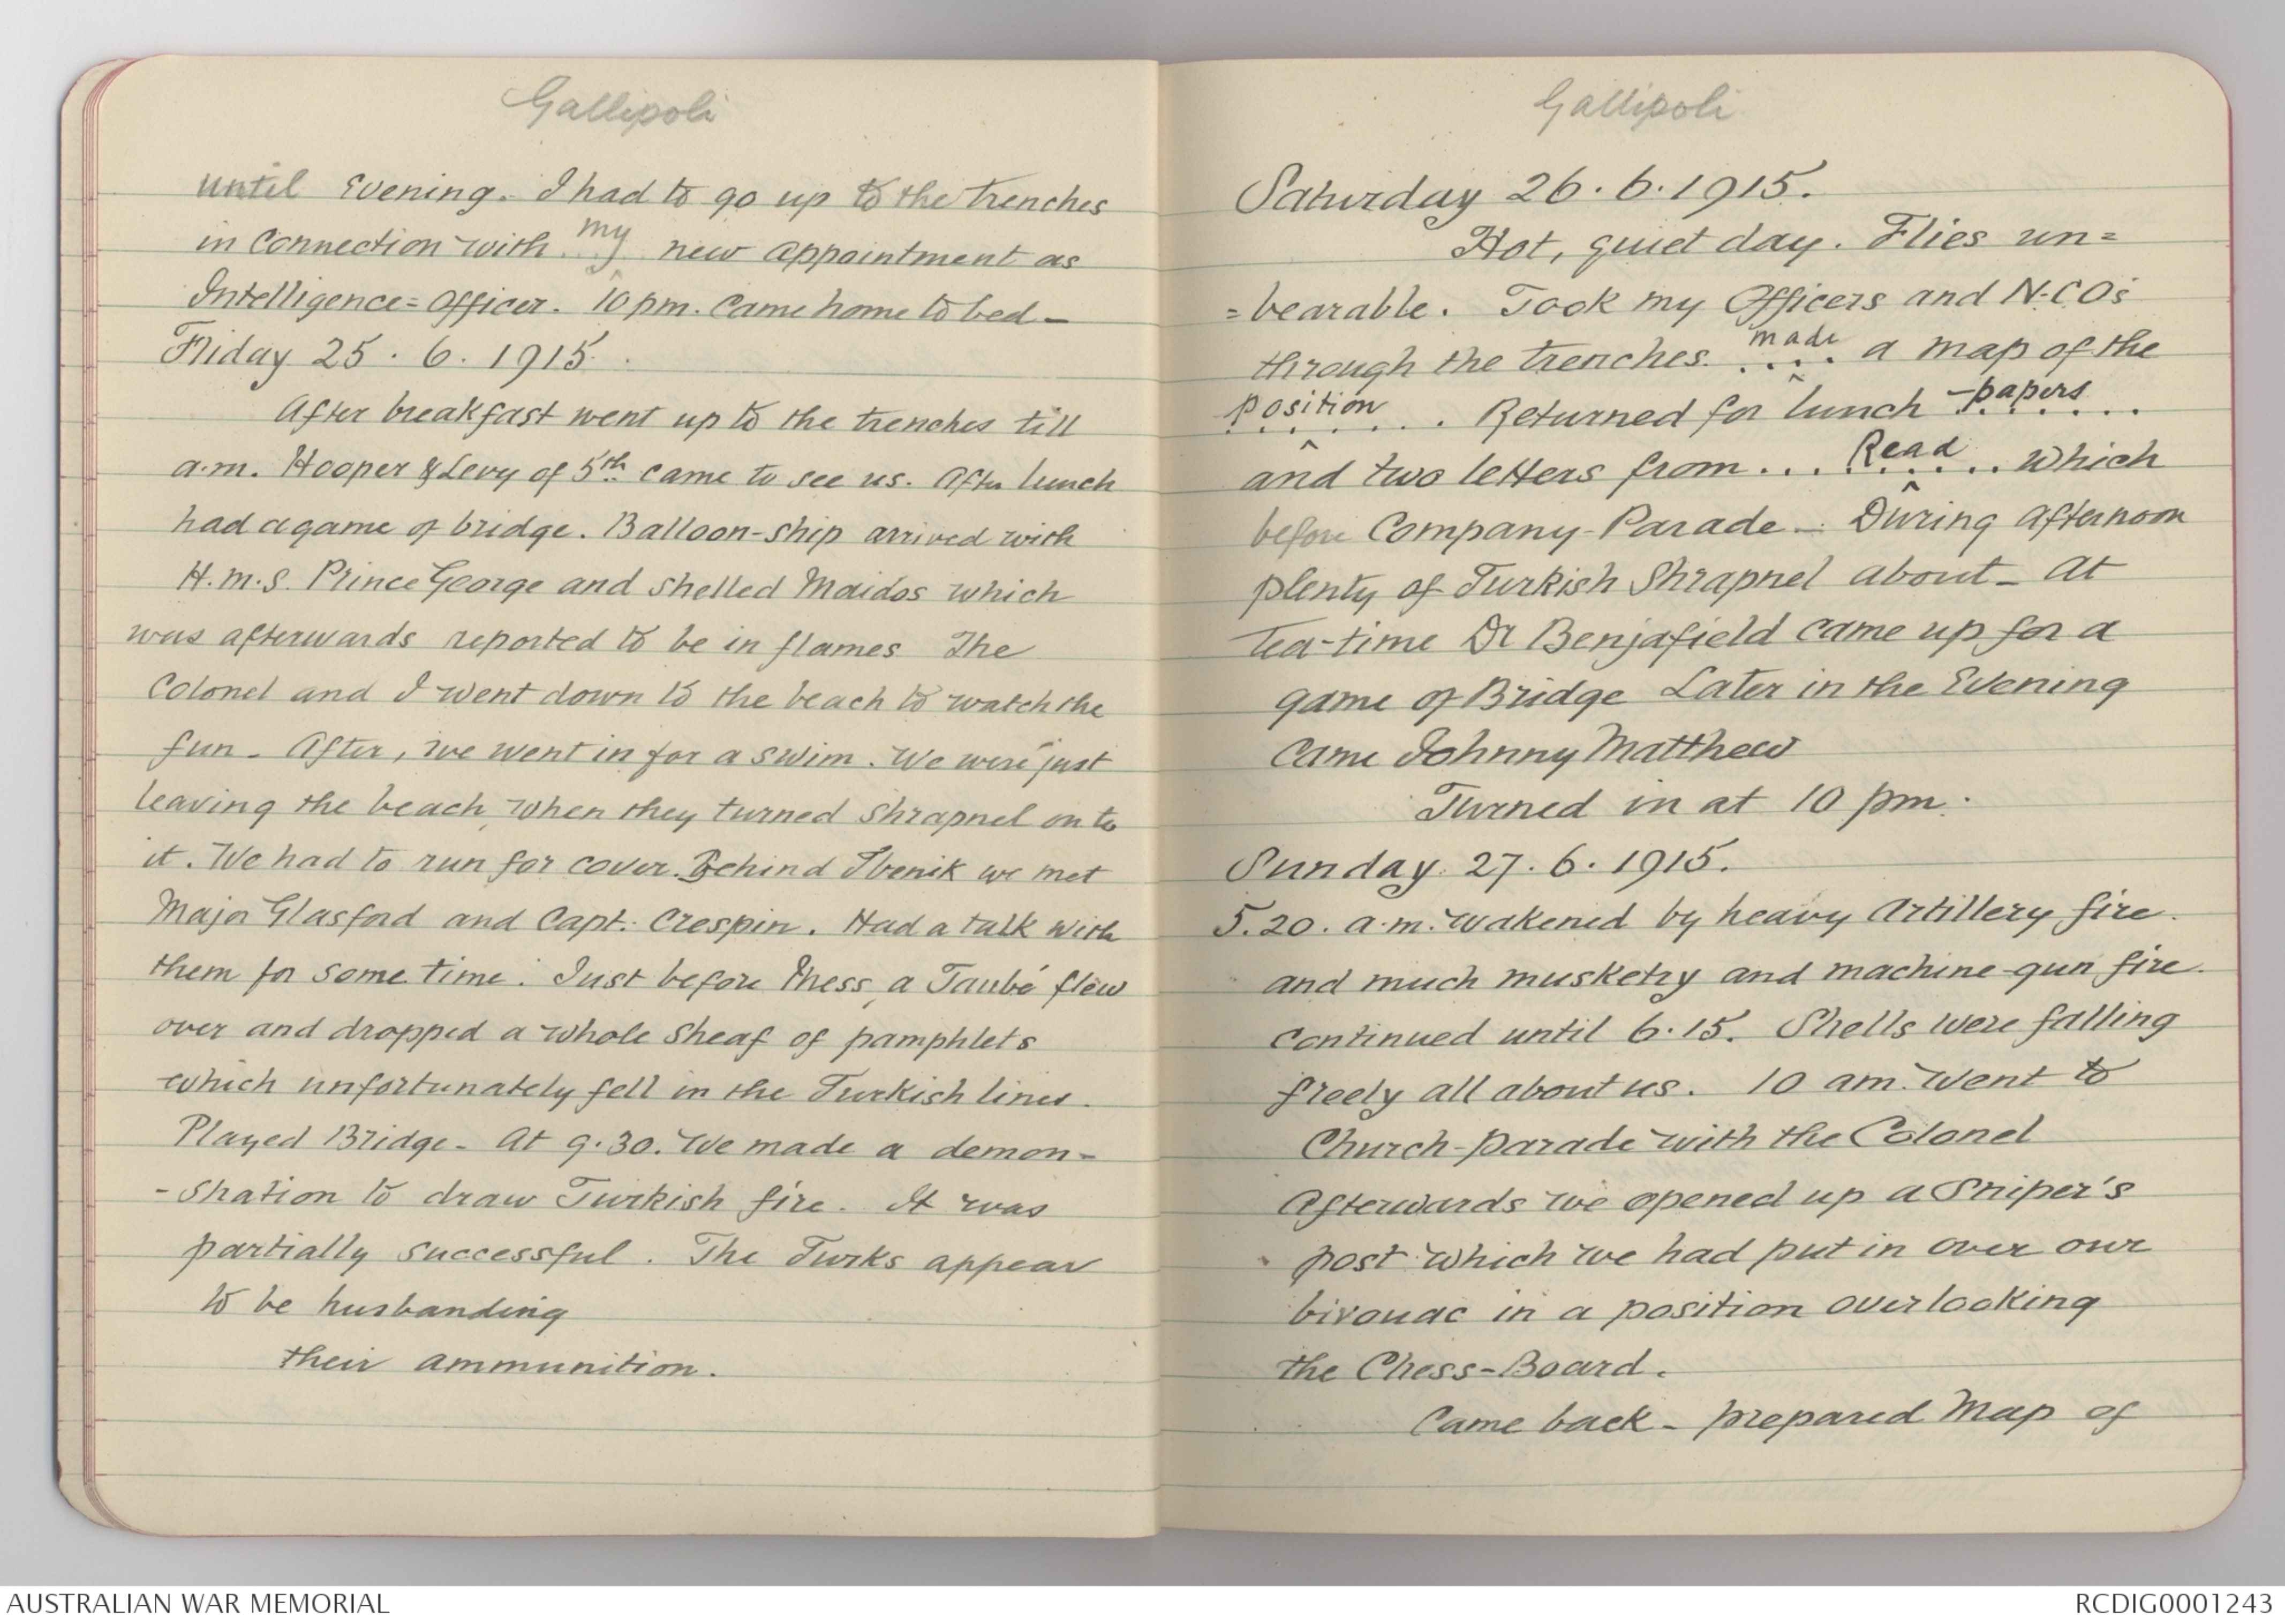 Gallipoli
until Evening. I had to go up to the trenches
in Connection with my new appointment as
Intelligence = Officer. 10 pm. Came home to bed -
Friday 25. 6. 1915.
After breakfast went up to the trenches till
a.m. Hooper & Levy of 5th came to see us. After lunch
had a game of bridge. Balloon-ship arrived with
H.M.S. Prince George and shelled Maidos which
was afterwards reported to be in flames The
Colonel and I went down to the beach to watch the
fun - After, we went in for a swim. We were just
leaving the beach, when they turned Shrapnel on to
it. We had to run for cover. Behind we met
Major Glasford and Capt. Crespin. Had a talk with
them for some time. Just before Mess, a Taubé flew
over and dropped a whole sheaf of pamphlets
which unfortunately fell in the Turkish lines.
Played Bridge - At 9.30. We made a demon-
-stration to draw Turkish fire. It was
partially successful. The Turks appear
to be husbanding
their ammunition.
Gallipoli
Saturday 26. 6. 1915.
Hot, quiet day. Flies un=
=bearable. Took my Officers and N.COs
through the trenches. made a map of the
position . Returned for lunch - papers
and two letters from ... Read .. which
before Company-Parade - During afternoon
plenty of Turkish Shrapnel about - At
Tea-time Dr Benjafield came up for a
game of Bridge Later in the Evening
Came Johnny Matthew
Turned in at 10 pm.
Sunday. 27. 6. 1915.
5.20. a.m. wakened by heavy Artillery fire.
and much musketry and machine-gun fire.
continued until 6.15. Shells were falling
freely all about us. 10 am. Went to
Church-parade with the Colonel
Afterwards we opened up a Sniper's
post which we had put in over our
bivouac in a position overlooking
the Chess-Board.
Came back - prepared Map of
AUSTRALIAN WAR MEMORIAL
RCDIG0001243